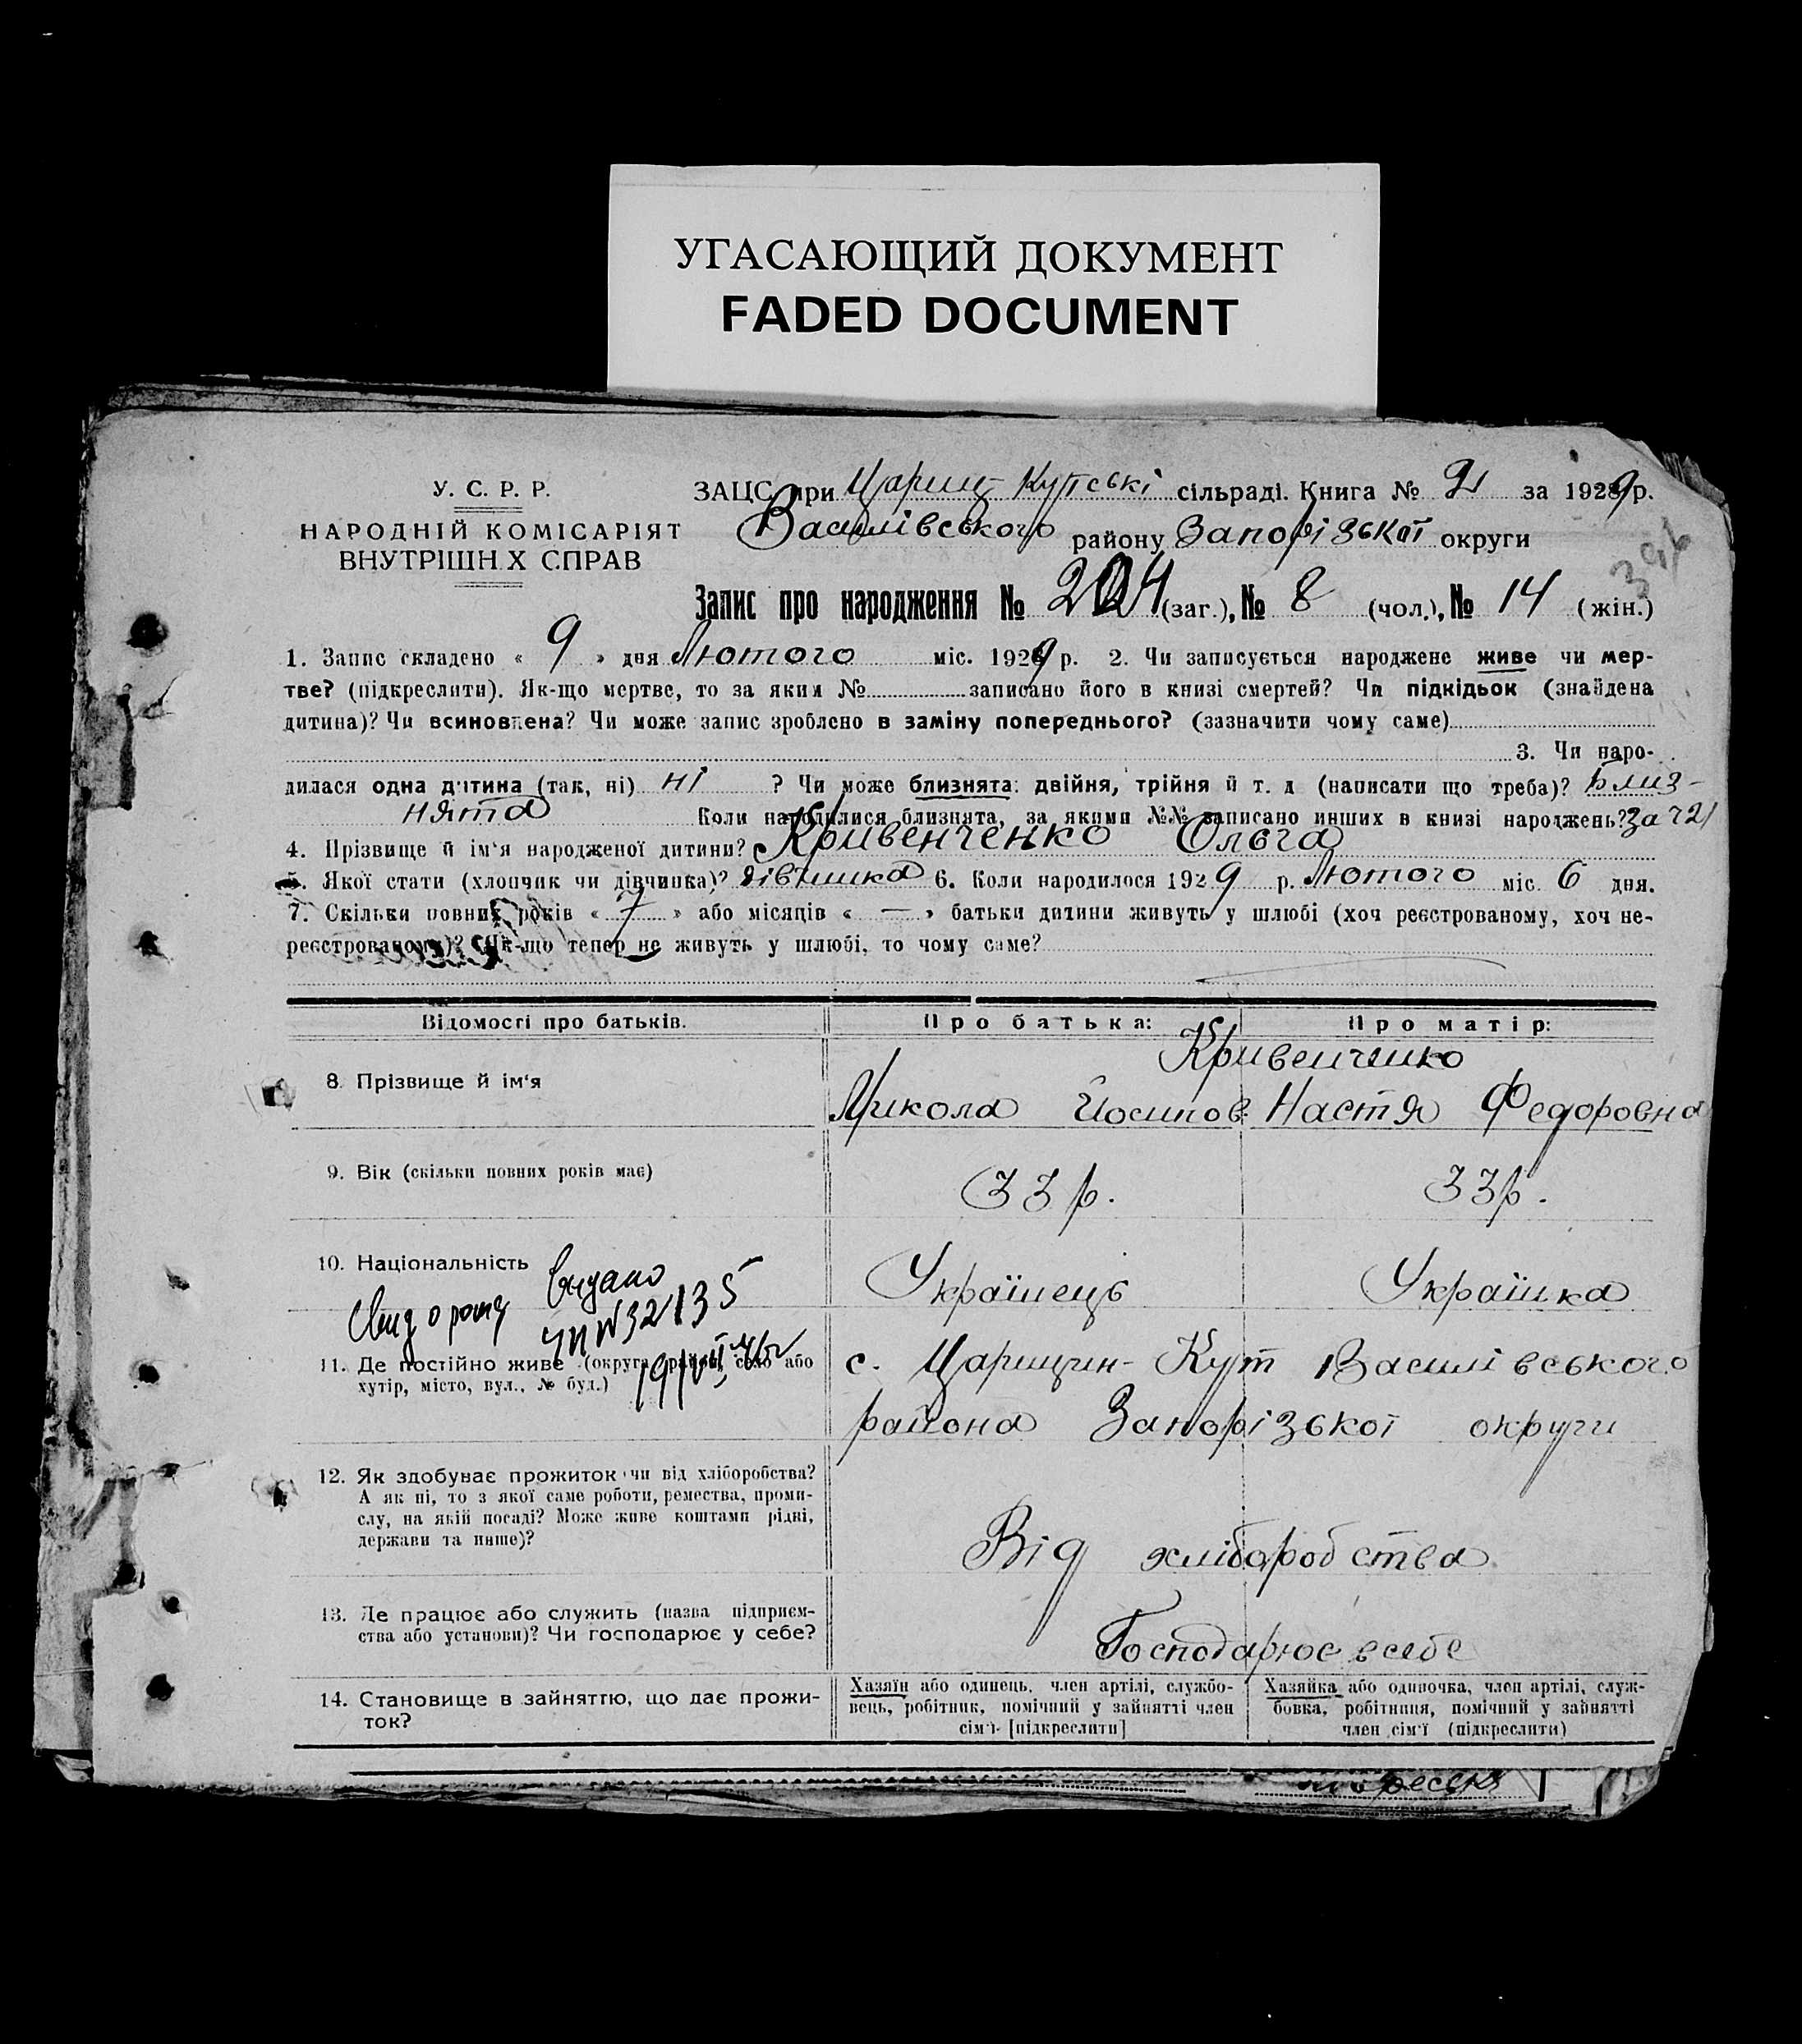 УГАСАЮЩИЙ ДОКУМЕНТ
FADED DOCUMENT
У. С. Р. Р.
НАРОДНІЙ КОМІСАРІЯТ
ВНУТРІШН Х СПРАВ
ЗАЦС при Царищ-Кутські сільраді. Книга № за 1929 р.
Василівського району Запорізької округи
Запис про народження № (заг.), № 8 (чол.), № 14 (жін.)
1. Запис складено « 9 » дня Лютого міс. 1929 р. 2. Чи записується народжене живе чи мер-
тве? (підкреслити). Як-що мертве, то за яким № записано його в книзі смертей? Чи підкідьок (знайдена
дитина)? Чи всиновлена? Чи може запис зроблено в заміну попереднього? (зазначити чому саме)
3. Чи наро-
дилася одна дитина (так, ні) ні ? Чи може близнята: двійня, трійня й т. д (написати що треба)? Близ-
нята Коли народилися близнята, за якими №№ записано инших в книзі народжень? за ч21
4. Прізвище й ім'я народженої дитини? Кривенченко Ольга
5. Якої стати (хлопчик чи дівчинка)? дівчинка 6. Коли народилося 1929 р. Лютого міс 6 дня.
7. Скільки повних років « 7 » або місяців « — » батьки дитини живуть у шлюбі (хоч реєстрованому, хоч не-
реєстрованому)? Як-що тепер не живуть у шлюбі, то чому саме?
Відомості про батьків.
Про батька:
Про матір:
8. Прізвище й ім'я
Кривенченко
Микола Йосипов.
Настя Федоровна
9. Вік (скільки повних років має)
33 р.
33 р.
10. Національність
Українець
Українка
видано
ЧП №32135
11. Де постійно живе (округа, район, село або
хутір, місто, вул., № буд.)
с. Царицин-Кут Василівського
района Запорізької округи
12. Як здобуває прожиток чи від хліборобства?
А як ні, то з якої саме роботи, ремества, проми-
слу, на якій посаді? Може живе коштами рідні,
держави та инше)?
Від хліборобства
13. Де працює або служить (назва підприєм-
ства або установи)? Чи господарює у себе?
Господарює в себе
14. Становище в зайняттю, що дає прожи-
ток?
Хазяїн або одинець, член артілі, службо-
вець, робітник, помічний у зайнятті член
сім'ї [підкреслити]
Хазяйка або одиночка, член артілі, служ-
бовка, робітниця, помічний у зайнятті
член сім'ї (підкреслити)